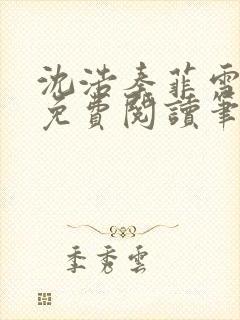 沈浩秦菲雪
免費閱讀筆
季秀雲